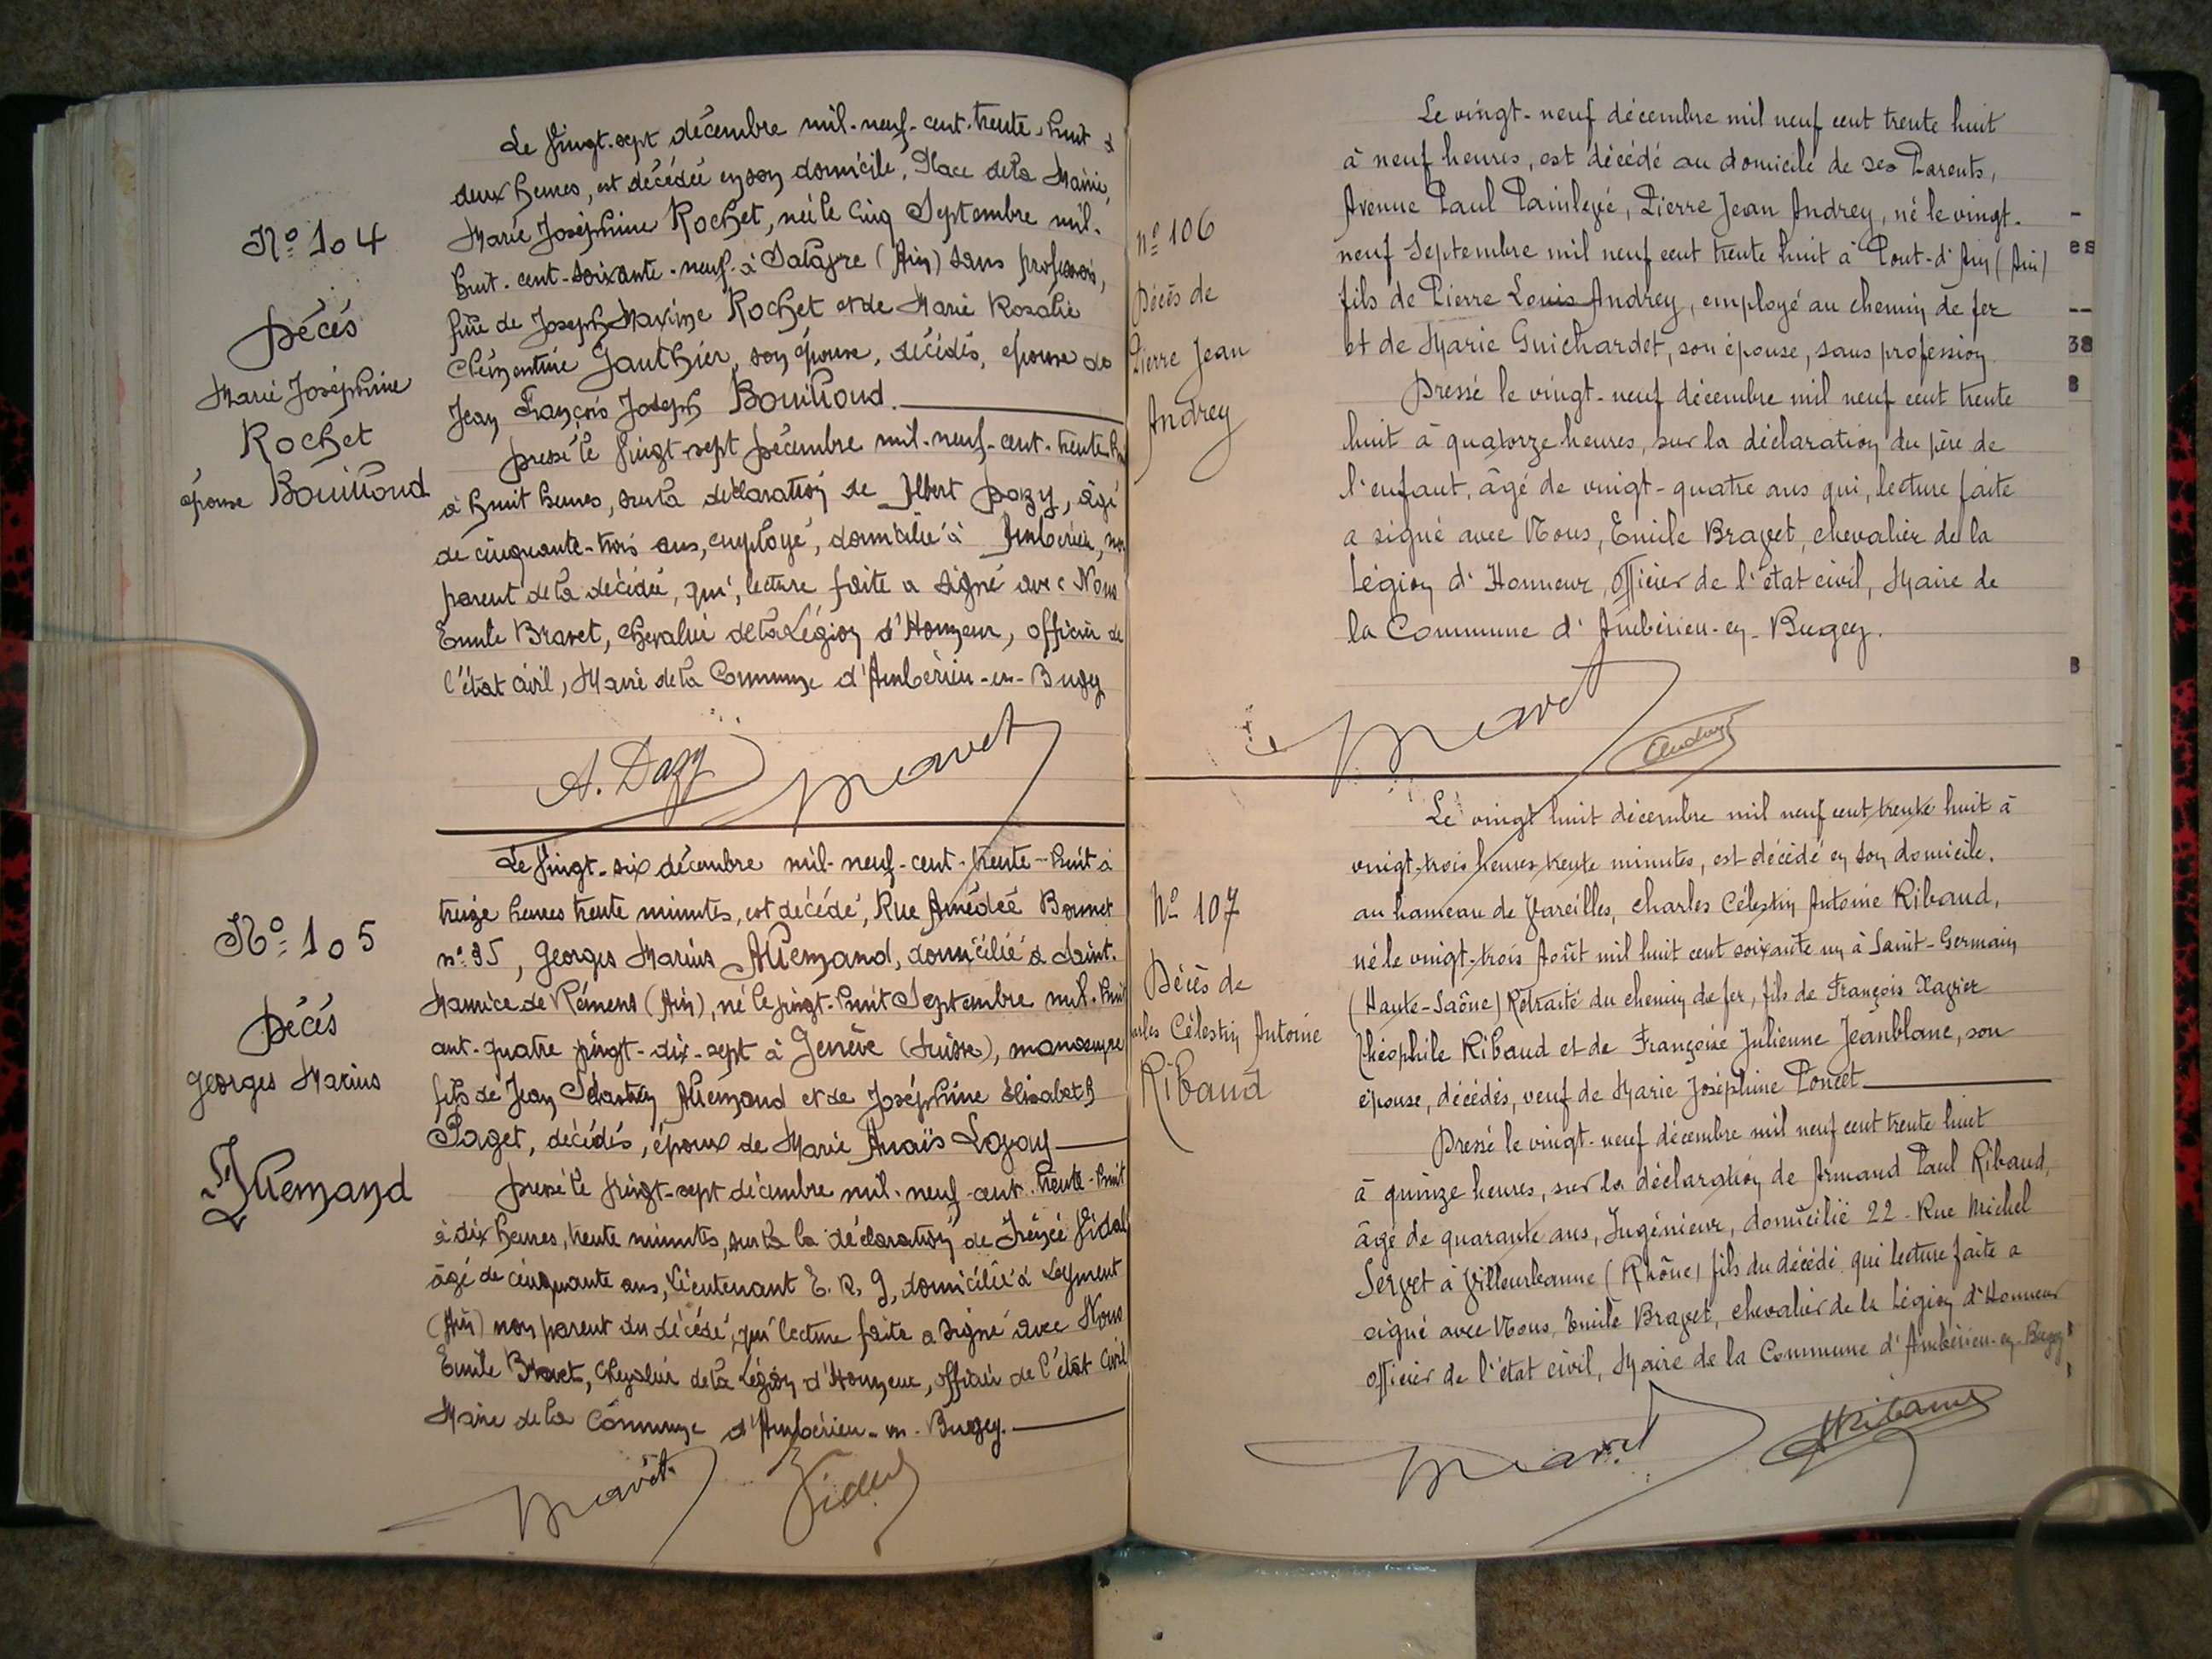 Nº 104
Décès
Marie Joséphine
Rochet
épouse Bouilloud
Le vingt-sept décembre mil-neuf-cent-trente-huit à
deux heures, est décédée en son domicile, Place de la Mairie,
Marie Joséphine Rochet, née le cinq Septembre mil-
huit-cent-soixante-neuf à (Ain) sans profession,
fille de Joseph Maxime Rochet et de Marie Rosalie
Clémentine Gauthier, son épouse, décédés, épouse de
Jean François Joseph Bouilloud.
Dressé le vingt-sept Décembre mil-neuf-cent-trente
à huit heures, sur la déclaration de Albert Dazy, âgé
de cinquante-trois ans, employé, domicilié à Ambérieu, non
parent de la décédée, qui, lecture faite a signé avec Nous
Emile Bravet, Chevalier de la Légion d'Honneur, officier de
l'état civil, Maire de la Commune d'Ambérieu-en-Bugey
A. Dazy
Bravet
Nº 105
Décès
Georges Marius
Allemand
Le vingt-six décembre mil-neuf-cent-trente-huit à
treize heures trente minutes, est décédé, Rue Amédée Bonnet
nº 35, Georges Marius Allemand, domicilié à Saint-
Maurice de Rémens (Ain), né le vingt-huit Septembre mil-huit
cent-quatre vingt-dix-sept à Genève (Suisse), manoeuvre
fils de Jean Sébastien Allemand et de Joséphine Elisabeth
Paget, décédés, époux de Marie Anaïs
Dressé le vingt-sept décembre mil-neuf-cent-trente-huit
à dix heures, trente minutes, sur la la déclaration de Irénée Vidal
âgé de cinquante ans, Lieutenant E. R. 9, domicilié à Leyment
(Ain) non parent du décédé, qui lecture faite a signé avec Nous
Emile Bravet, Chevalier de la Légion d'Honneur, officier de l'état civil
Maire de la Commune d'Ambérieu-en-Bugey.
Bravet
Vidal
nº 106
Décès de
Pierre Jean
Andrey
Le vingt-neuf décembre mil neuf cent trente huit
à neuf heures, est décédé au domicile de ses Parents,
Avenue Paul Painlevé, Pierre Jean Andrey, né le vingt-
neuf Septembre mil neuf cent trente huit à Pont-d'Ain (Ain)
fils de Pierre Louis Andrey, employé au chemin de fer
et de Marie Guichardet, son épouse, sans profession
Dressé le vingt-neuf décembre mil neuf cent trente
huit à quatorze heures, sur la déclaration du père de
l'enfant, âgé de vingt-quatre ans qui, lecture faite
a signé avec Nous, Emile Bravet, chevalier de la
Légion d'Honneur, Officier de l'état civil, Maire de
la Commune d'Ambérieu-en-Bugey.
Bravet
Andrey
Nº 107
Décès de
arles Célestin Antoine
Ribaud
Le vingt huit décembre mil neuf cent trente huit à
vingt-trois heures trente minutes, est décédé en son domicile,
au hameau de Vareilles, Charles Célestin Antoine Ribaud,
né le vingt-trois Août mil huit cent soixante un à Saint-Germain
(Haute-Saône) Retraité du chemin de fer, fils de François Xavier
Théophile Ribaud et de Françoise Julienne Jeanblanc, son
épouse, décédés, veuf de Marie Joséphine Poncet
Dressé le vingt-neuf décembre mil neuf cent trente huit
à quinze heures, sur la déclaration de Armand Paul Ribaud,
âgé de quarante ans, Ingénieur, domicilié 22 - Rue Michel
Servet à Villeurbanne (Rhône) fils du décédé qui lecture faite a
signé avec Nous, Emile Bravet, chevalier de la Légion d'Honneur
Officier de l'état civil, Maire de la Commune d'Ambérieu-en-Bugey
Bravet
Ribaud
es
38
B
B